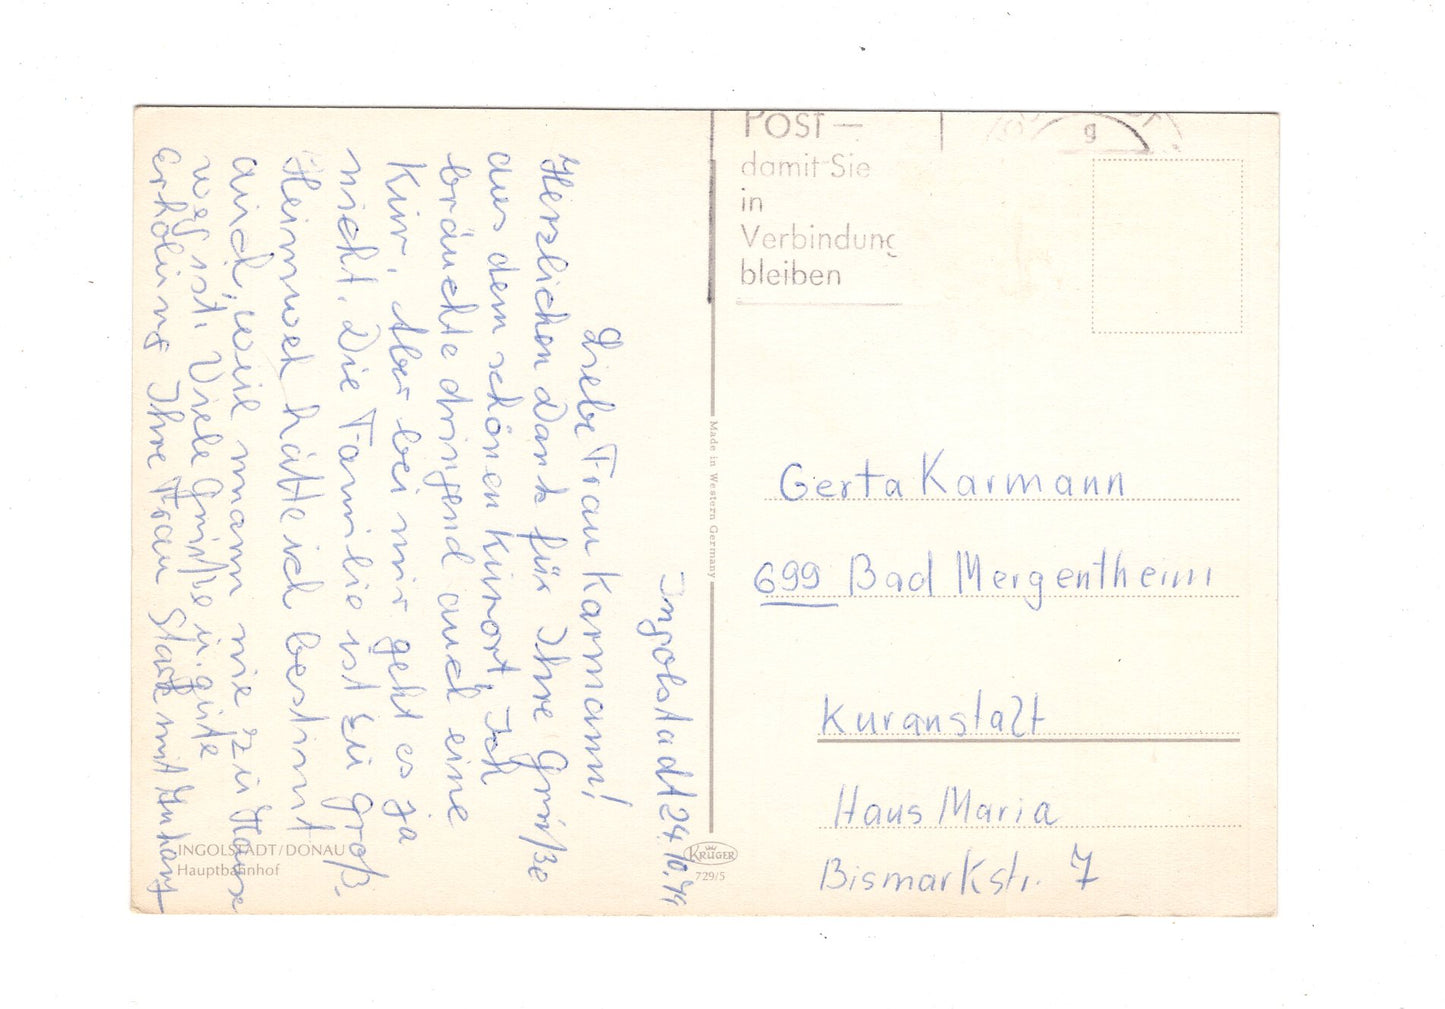 Ingolstadt 24.10.74
Liebe Frau Karmann!
Herzlichen Dank für Ihre Grüße
aus dem schönen Kurort. Ich
bräuchte dringend auch eine
Kur. Aber bei mir geht es ja
nicht. Die Familie ist zu groß.
Heimweh hätte ich bestimt
auch, weil mann nie zu Hause
weg ist. Viele Grüße u. gute
Erholung Ihre Frau Stark mit Anhang
INGOLSTADT/DONAU
Hauptbahnhof
Made in Western Germany
KRÜGER
729/5
POST—
damit Sie
in
Verbindung
bleiben
g
Gerta Karmann
699 Bad Mergentheim
Kuranstalt
Haus Maria
Bismarkstr. 7